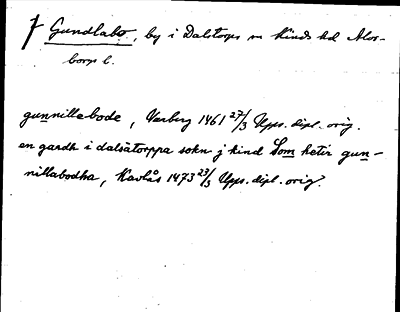 Gundlabo, by i Dalstorps sn Kinds hd Älvs-
borgs l.
gunnillebode, Varberg 1461 27/3 Upps. dipl. orig.
en gardh i dalsätorppa sokn j kind Som hetir gun-
nillabodha, Kavlås 1473 23/3 Upps. dipl. orig.